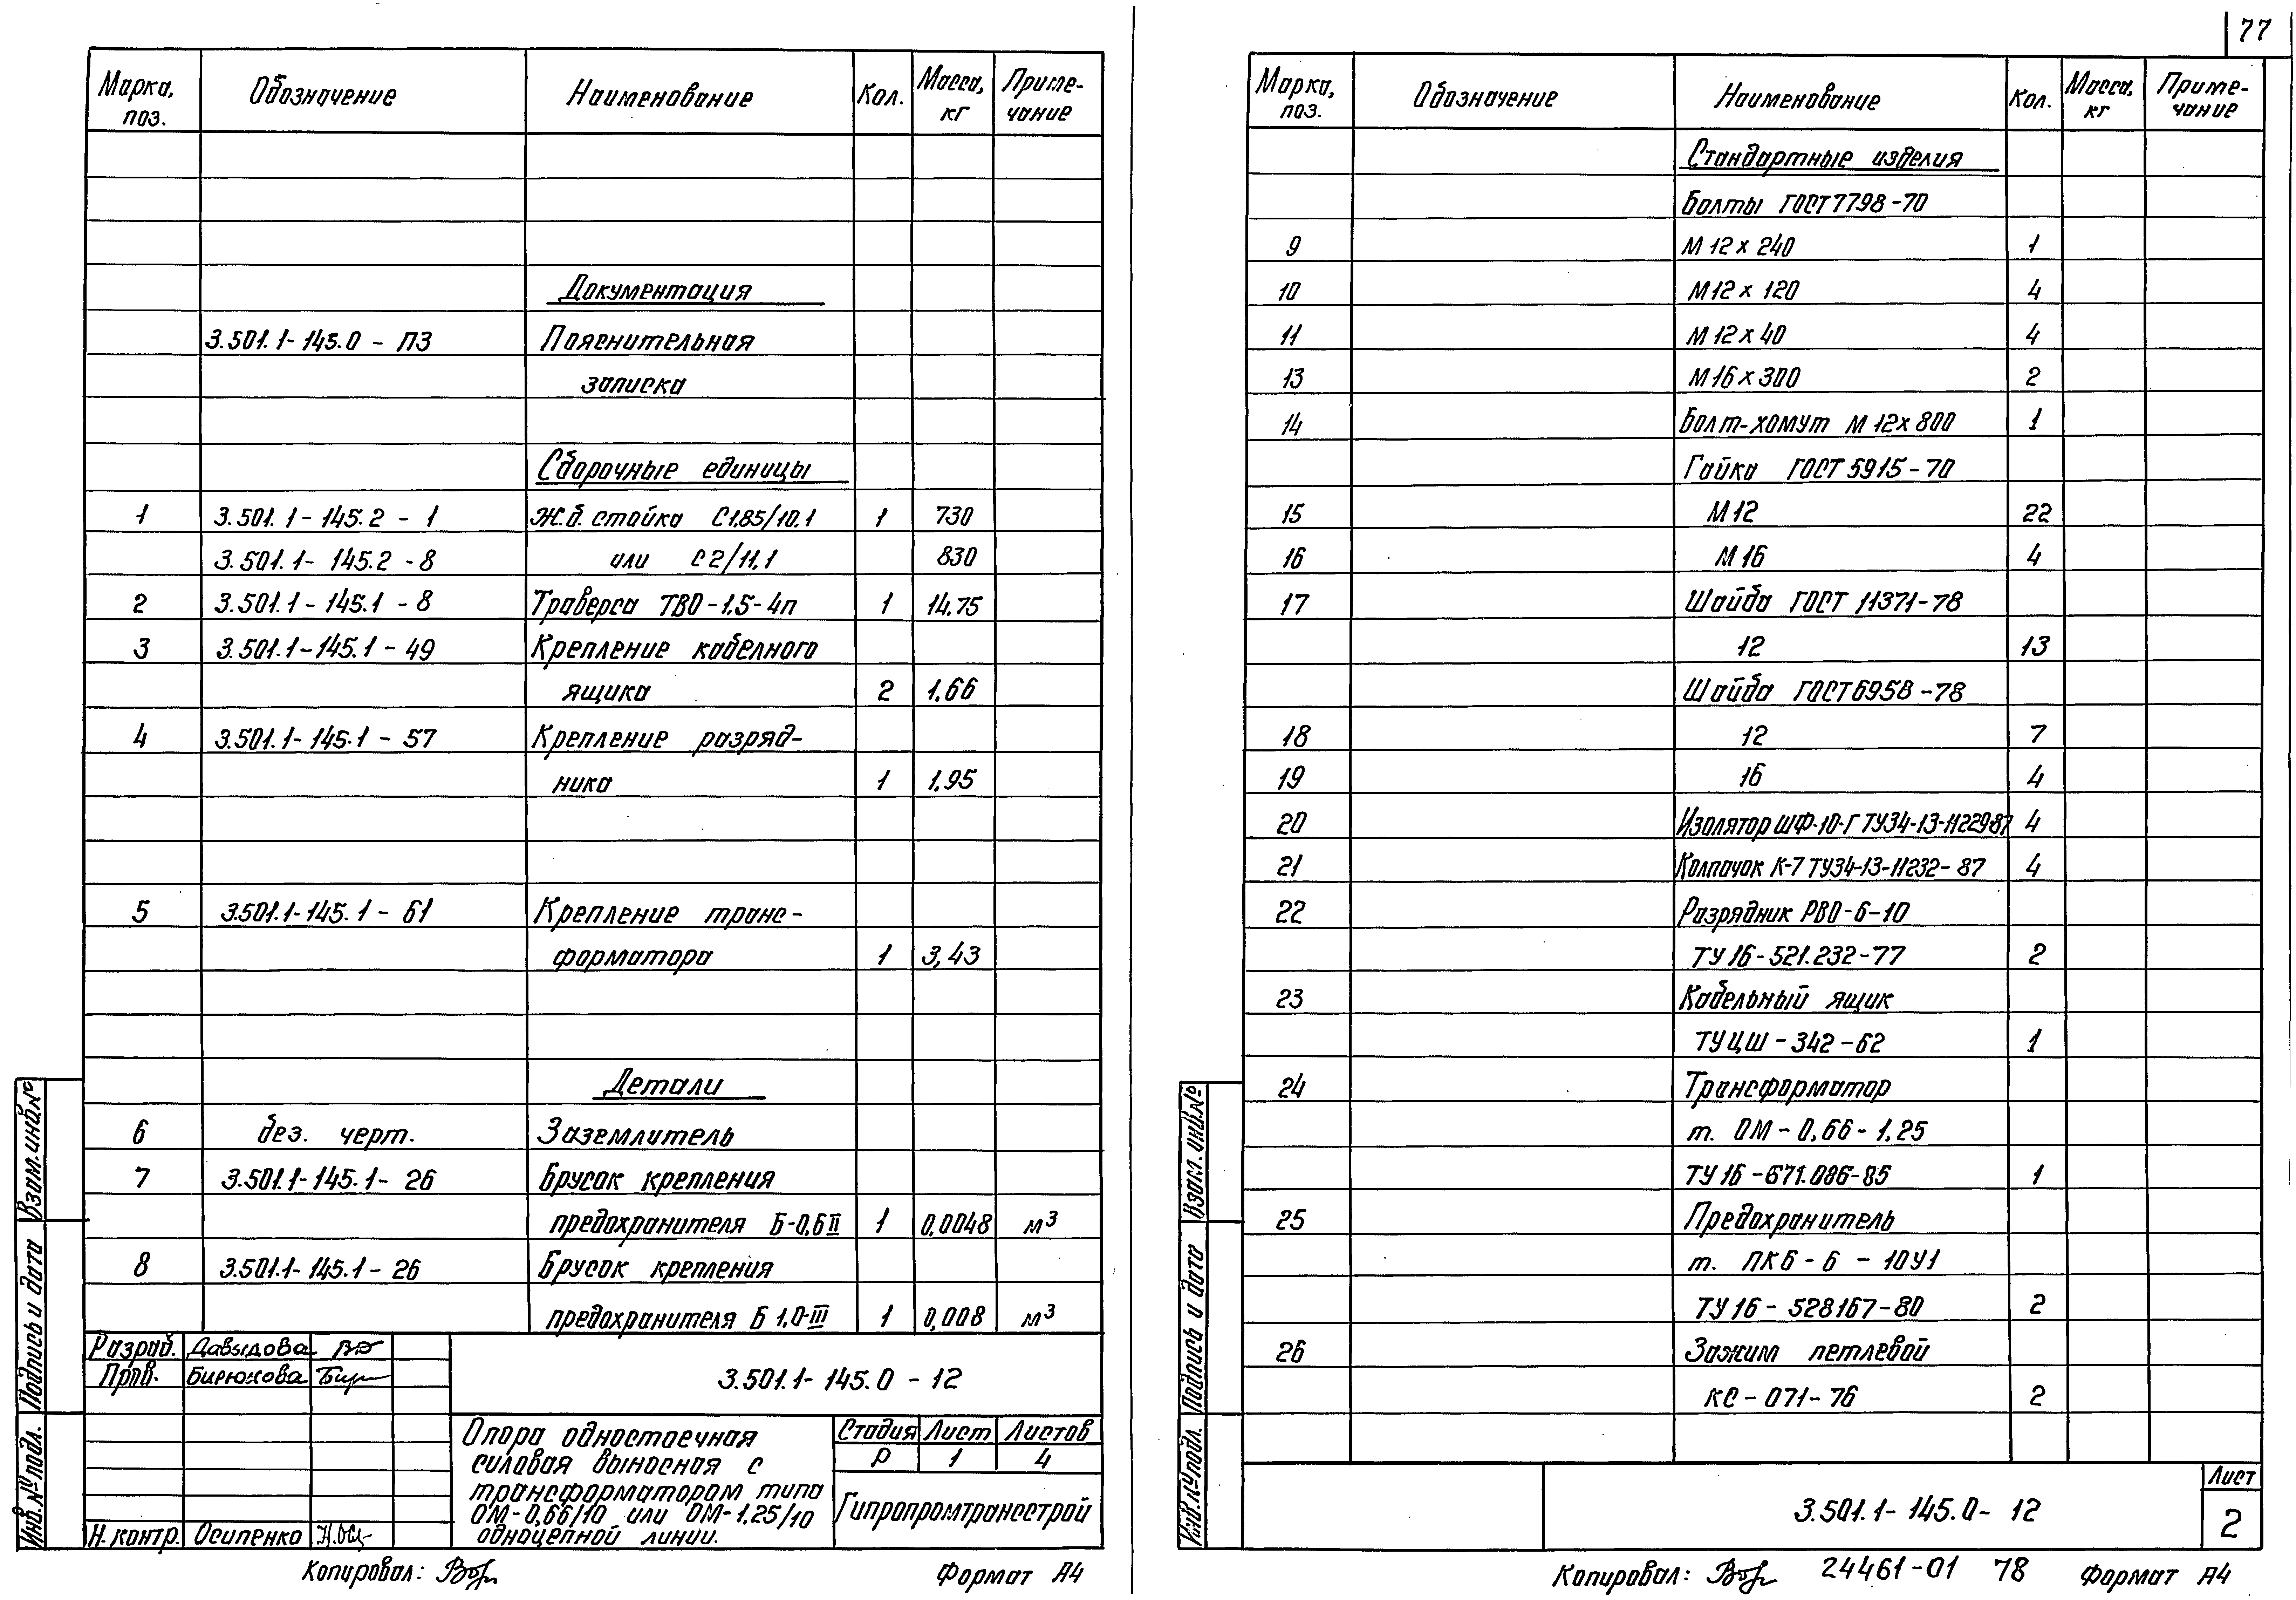 Марка, поз. Обозначение Наименование Кол. Масса, кг Приме-чание
Документация
3.501.1-145.0-ПЗ Пояснительная
записка
Сборочные единицы
1 3.501.1-145.2-1 Ж.б. стойка С1,85/10.1 1 730
3.501.1-145.2-8 или С2/11.1 830
2 3.501.1-145.1-8 Траверса ТВО-1,5-4п 1 14.75
3 3.501.1-145.1-49 Крепление кабелного
ящика 2 1,66
4 3.501.1-145.1-57 Крепление разряд-
ника 1 1,95
5 3.501.1-145.1-61 Крепление транс-
форматора 1 3,43
Детали
6 без. черт. Заземлитель
7 3.501.1-145.1-26 Брусок крепления
предохранителя Б-0,6II 1 0,0048 м³
8 3.501.1-145.1-26 Брусок крепления
предохранителя Б 1,0-III 1 0,008 м³
Взам. инв.№
Подпись и дата
Инв.№ подл.
Разраб. Давыдова
Пров. Бирюкова
Н.контр. Осипенко
3.501.1-145.0-12
Опора одностоечная
силовая выносная с
трансформатором типа
ОМ-0,66/10 или ОМ-1,25/10
одноцепной линии.
Стадия Лист Листов
Р 1 4
Гипропромтрансстрой
Копировал:
Формат А4
77
Марка, поз. Обозначение Наименование Кол. Масса, кг Приме-чание
Стандартные изделия
Болты ГОСТ 7798-70
9 М12х240 1
10 М12х120 4
11 М12х40 4
13 М16х300 2
14 Болт-хомут М12х800 1
Гайка ГОСТ 5915-70
15 М12 22
16 М16 4
17 Шайба ГОСТ 11371-78
12 13
Шайба ГОСТ 6958-78
18 12 7
19 16 4
20 Изолятор ШФ-10-Г ТУ34-13-11229-87 4
21 Колпачок К-7 ТУ34-13-11232-87 4
22 Разрядник РВО-6-10
ТУ 16-521.232-77 2
23 Кабельный ящик
ТУ ЦШ-342-62 1
24 Трансформатор
т. ОМ-0,66-1,25
ТУ 16-671.086-85 1
25 Предохранитель
т. ПК6-6-10У1
ТУ 16-528167-80 2
26 Зажим петлевой
КС-071-76 2
Взам. инв.№
Подпись и дата
Инв.№ подл.
3.501.1-145.0-12
Лист
2
Копировал:
24461-01 78
Формат А4